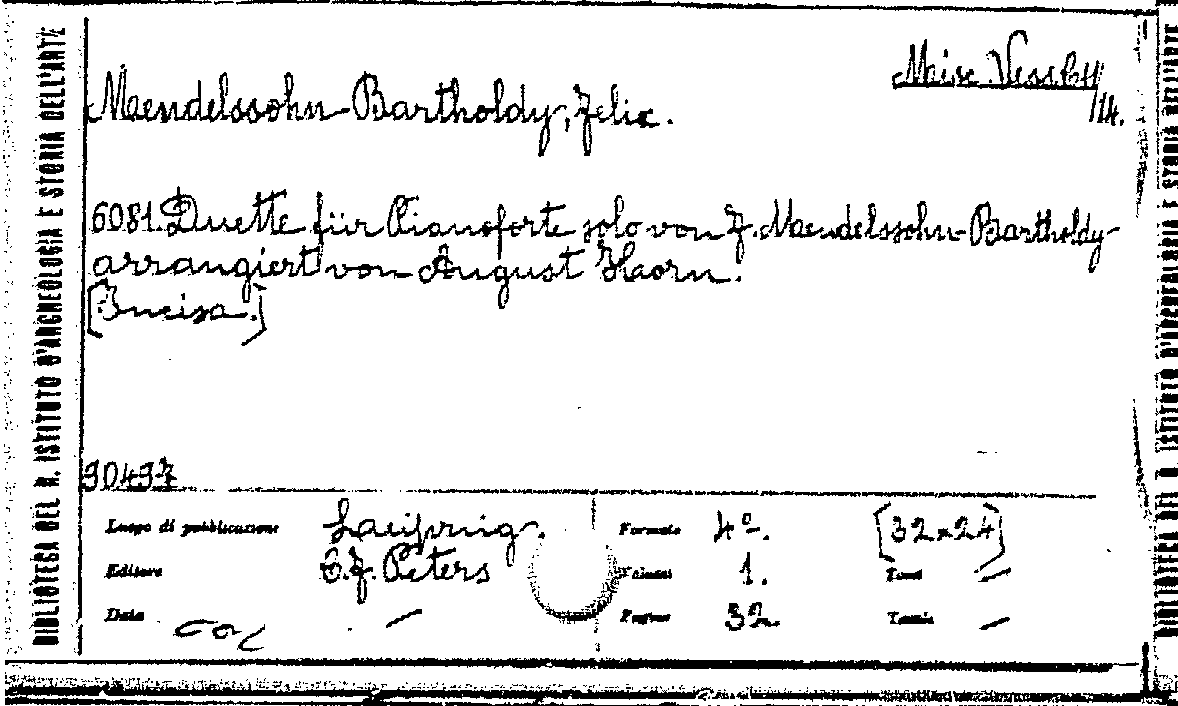 BIBLIOTECA DEL R. ISTITUTO D'ARCHEOLOGIA E STORIA DELL'ARTE
Misc. Vessella
/14.
Mendelssohn-Bartholdy, Felix.
6081. Duette für Pianoforte solo von F. Mendelssohn-Bartholdy
arrangiert von August Haorn.
[Incisa.]
90497
Luogo di pubblicazione Laeipzig. Formato 4º. [32x24]
Editore C. F. Peters Volumi 1. Tomi —
Data — Pagine 32. Tavole —
BIBLIOTECA DEL R. ISTITUTO D'ARCHEOLOGIA E STORIA DELL'ARTE